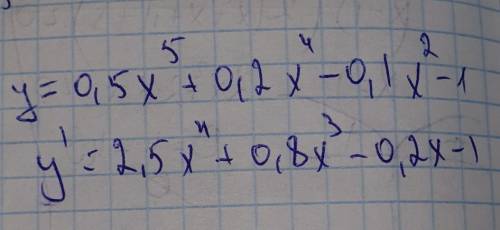 y = 0,5x⁵ + 0,2x⁴ - 0,1x² - 1
y' = 2,5x⁴ + 0,8x³ - 0,2x - 1